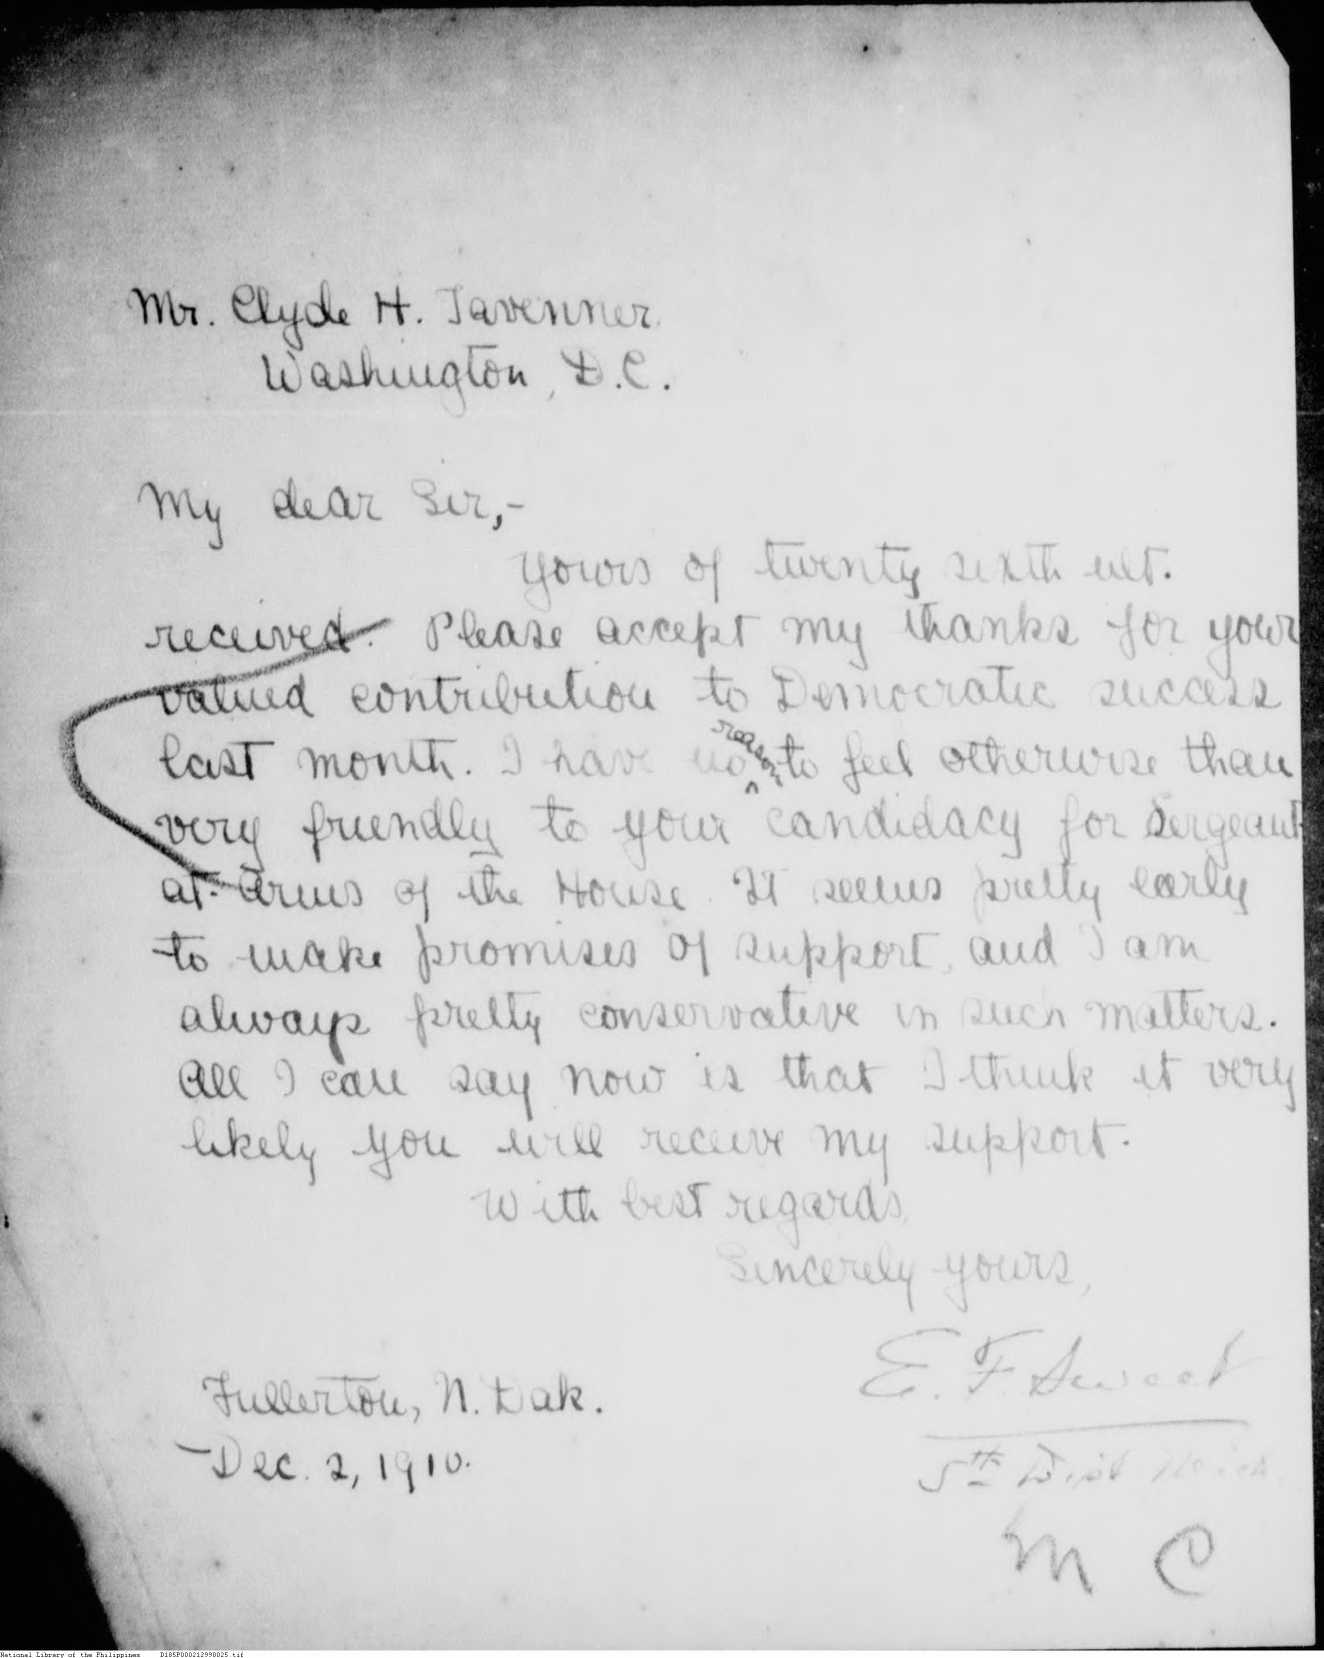 Mr. Clyde H. Tavenner.
Washington, D.C.
My dear Sir,-
Yours of twenty sixth ult.
received. Please accept my thanks for your
valued contribution to Democratic success
last month. I have no reason to feel otherwise than
very friendly to your candidacy for Sergeant-
at-Arms of the House. It seems pretty early
to make promises of support, and I am
always pretty conservative in such matters.
All I can say now is that I think it very
likely you will receive my support.
With best regards,
Sincerely yours,
E. F. Sweet
Fullerton, N. Dak.
5th Dist Mich.
Dec. 2, 1910.
M C
National Library of the Philippines D185P000212998025.tif